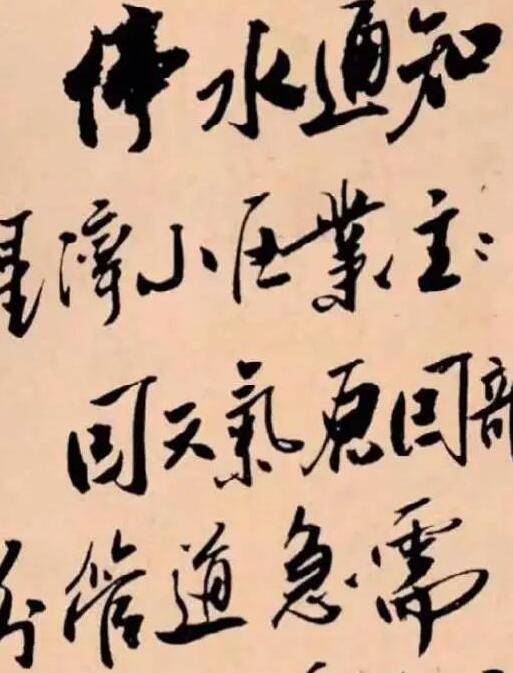 停水通知
星濟小区業主:
因天氣原因部
分管道急需